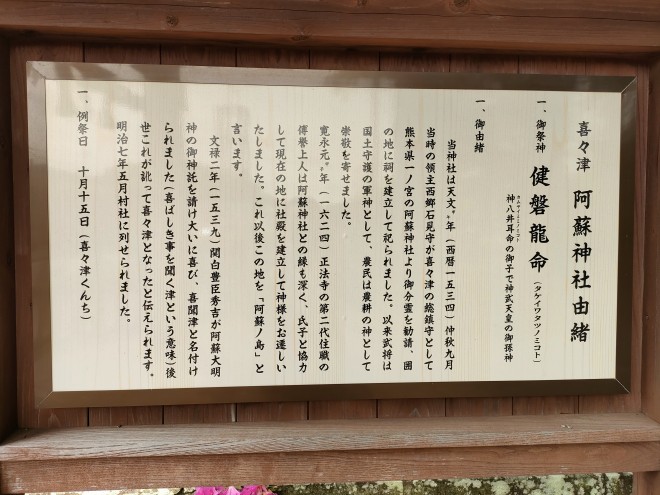 喜々津 阿蘇神社由緒
一、御祭神 健磐龍命(タケイワタツノミコト)
カムヤイミミノミコト
神八井耳命の御子で神武天皇の御孫神
一、御由緒
当神社は天文〃年(西暦一五三四)仲秋九月
当時の領主西郷石見守が喜々津の総鎮守として
熊本県一ノ宮の阿蘇神社より御分霊を勧請、囲
の地に祠を建立して祀られました。以来武将は
国土守護の軍神として、農民は農耕の神として
崇敬を寄せました。
寛永元〃年(一六二四)正法寺の第二代住職の
傳譽上人は阿蘇神社との縁も深く、氏子と協力
して現在の地に社殿を建立して神様をお遷しい
たしました。これ以後この地を「阿蘇ノ島」と
言います。
文禄二年(一五三九)関白豊臣秀吉が阿蘇大明
神の御神託を請け大いに喜び、喜聞津と名付け
られました(喜ばしき事を聞く津という意味)後
世これが訛って喜々津となったと伝えられます。
明治七年五月村社に列せられました。
一、例祭日 十月十五日(喜々津くんち)